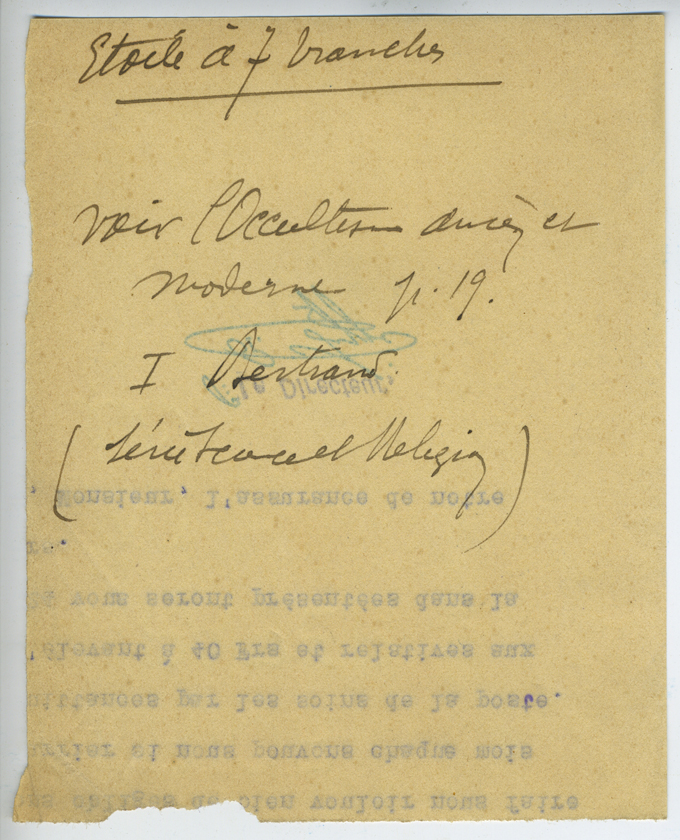 Etoile à 7 branches
voir l'Occultisme ancien et
moderne p. 19.
I Bertrand.
Le Directeur.
(Série Science et Religion)
, Monsieur, l'assurance de notre
vous seront présentées dans la
à 40 Frs et relatives aux
par les soins de la poste.
et nous pouvons chaque mois
de bien vouloir nous faire